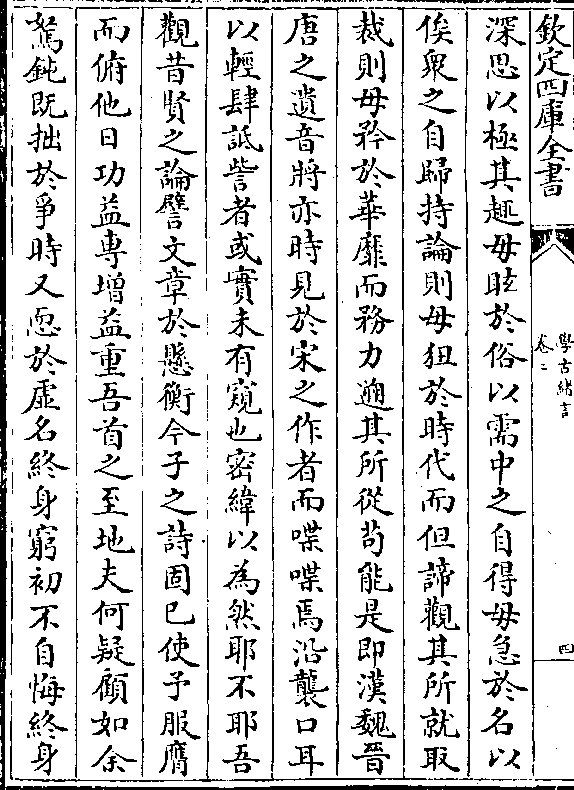 欽定四庫全書
學古緒言
卷二
四
深思以極其趣毋眩於俗以需中之自得毋急於名以
俟衆之自歸持論則毋狃於時代而但諦觀其所就取
裁則毋矜於華靡而務力遡其所從苟能是即漢魏晉
唐之遺音將亦時見於宋之作者而喋喋焉沿襲口耳
以輕肆詆訾者或實未有窺也密緯以為然耶不耶吾
觀昔賢之論譬文章於懸衡今子之詩固已使予服膺
而俯他日功益專增益重吾首之至地夫何疑顧如余
駑鈍既拙於爭時又恧於虛名終身窮初不自悔終身